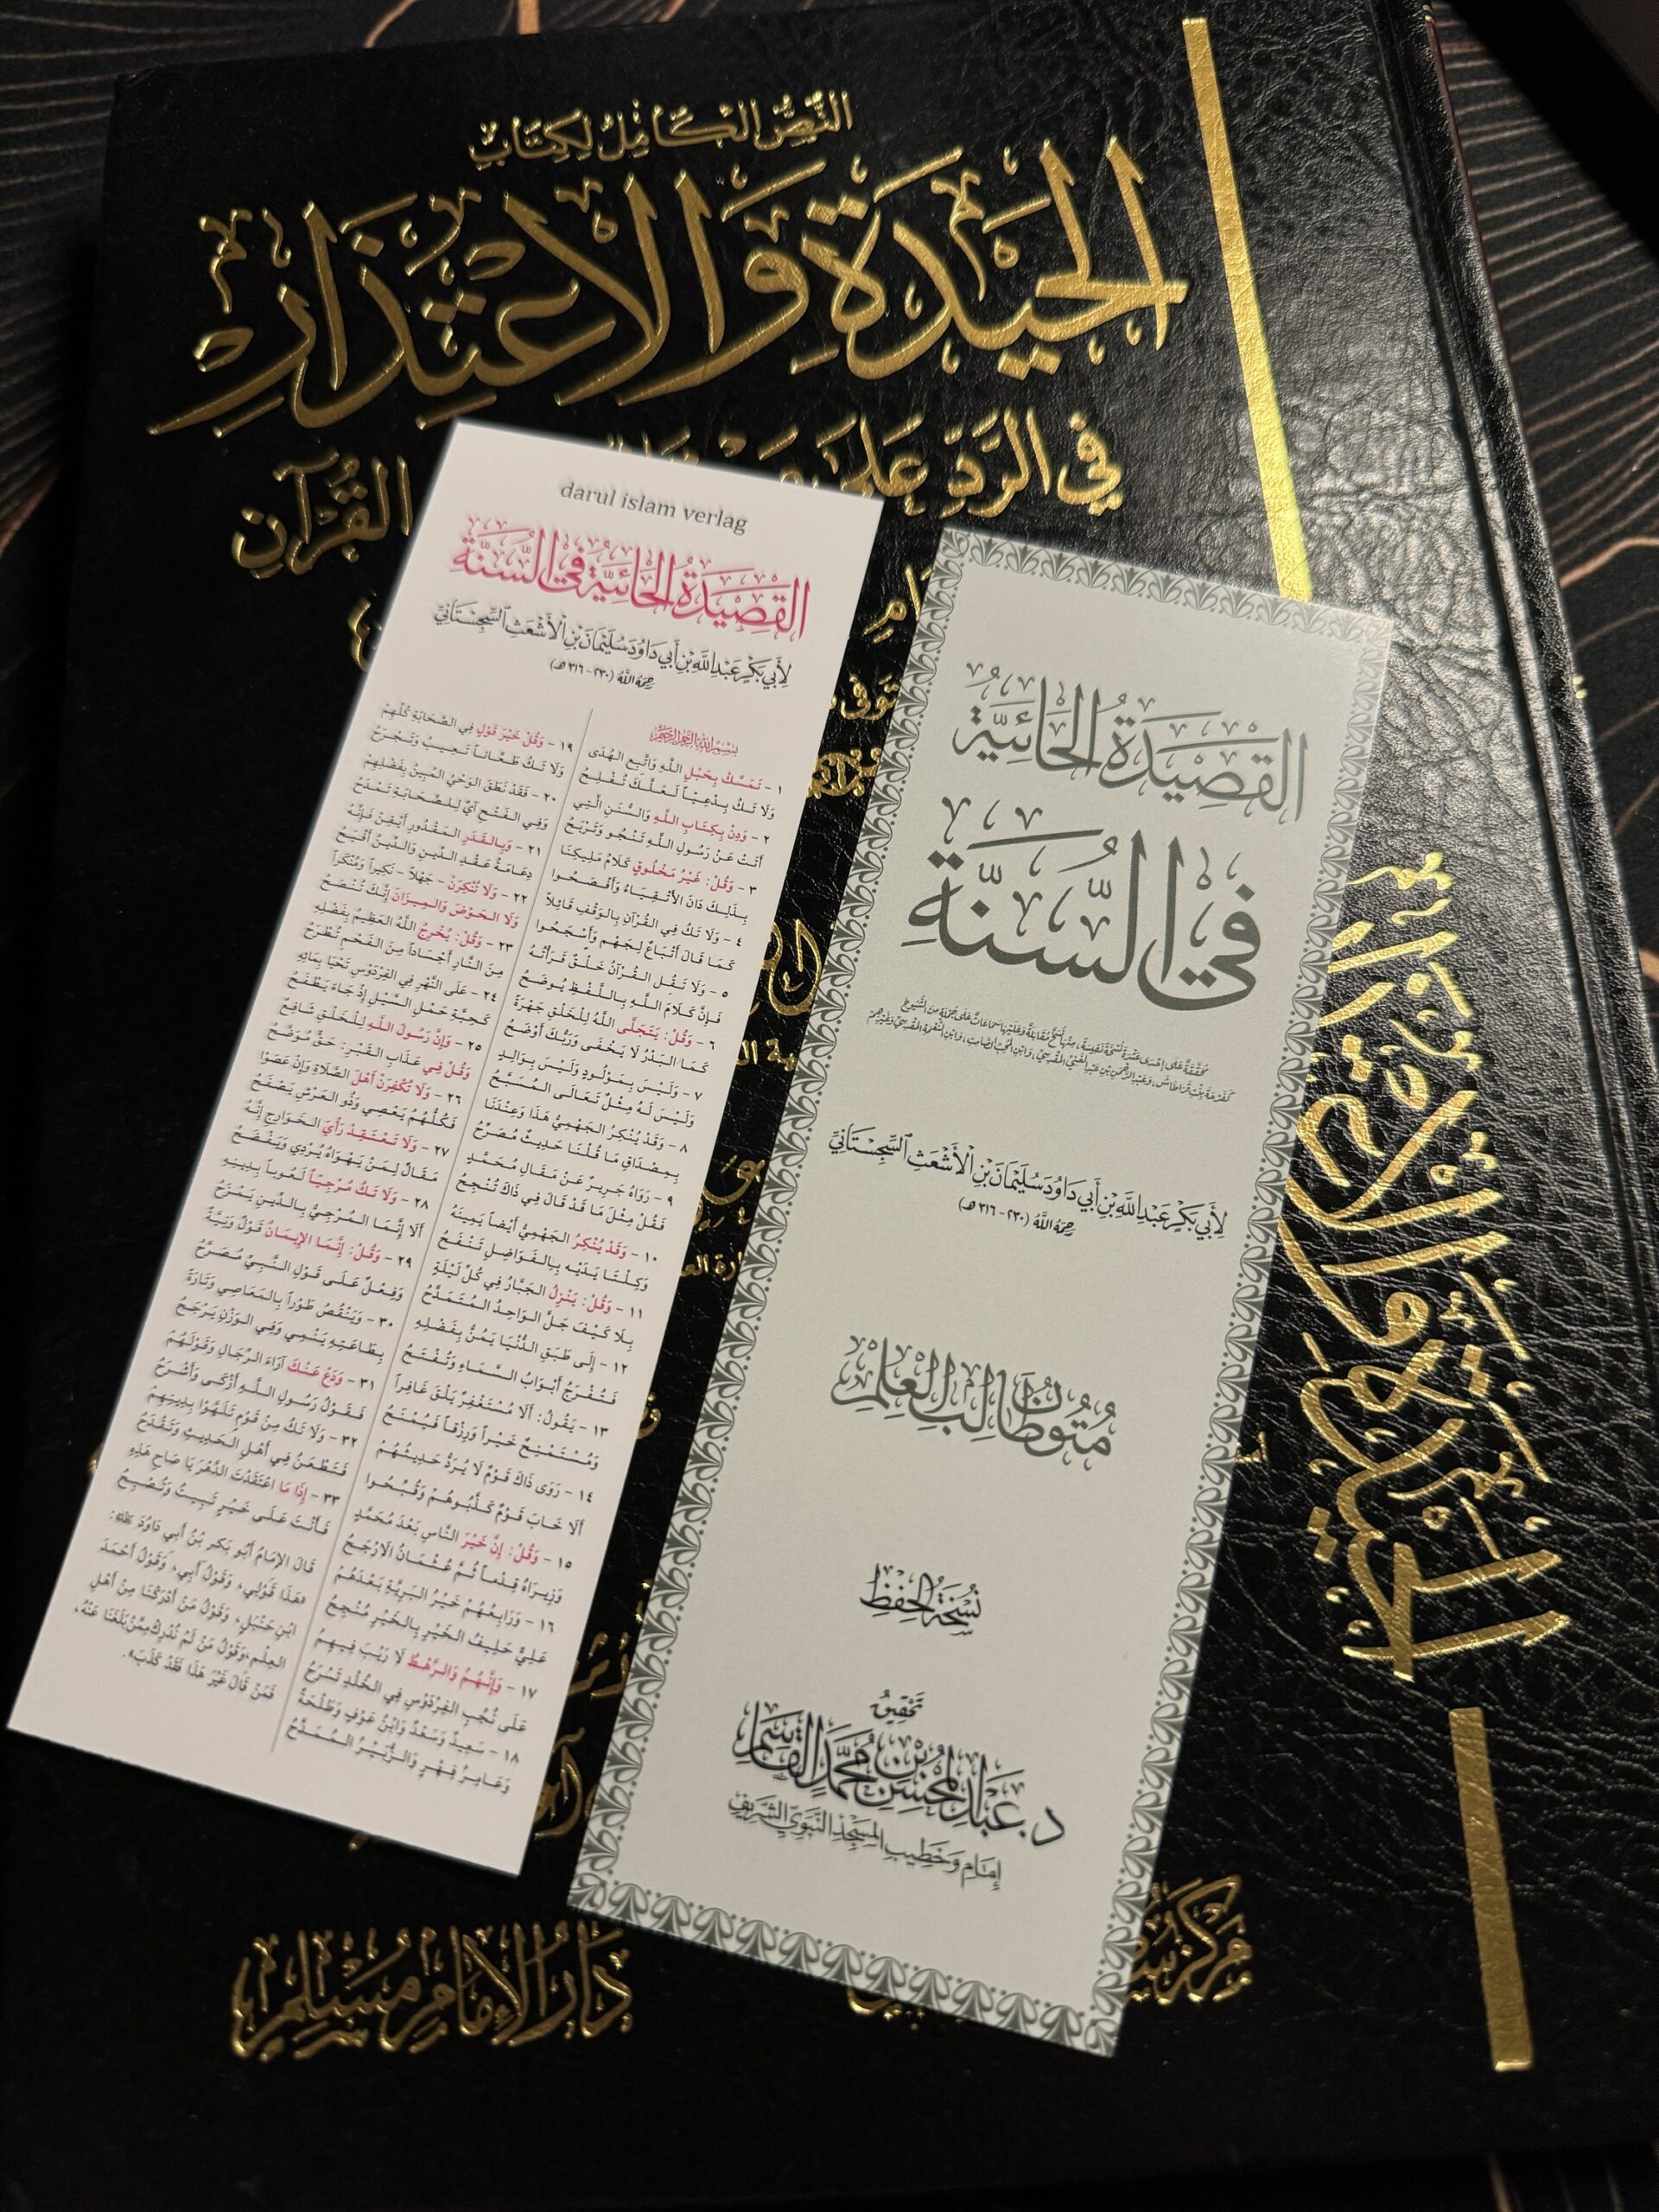 النَّصُّ الكَامِلُ لِكِتَابِ
الحَيْدَةِ وَالاعْتِذَارِ
فِي الرَّدِّ عَلَى
القُرْآنِ
darul islam verlag
القَصِيدَةُ الحَائِيَّةُ فِي السُّنَّةِ
لِأَبِي بَكْرٍ عَبْدِ اللَّهِ بْنِ أَبِي دَاوُدَ سُلَيْمَانَ بْنِ الأَشْعَثِ السِّجِسْتَانِيِّ
رَحِمَهُ اللَّهُ (٢٣٠ - ٣١٦ هـ)
بِسْمِ اللَّهِ الرَّحْمَنِ الرَّحِيمِ
١ - تَمَسَّكْ بِحَبْلِ اللَّهِ وَاتَّبِعِ الهُدَى
وَلَا تَكُ بِدْعِيّاً لَعَلَّكَ تُفْلِحُ
٢ - وَدِنْ بِكِتَابِ اللَّهِ وَالسُّنَنِ الَّتِي
أَتَتْ عَنْ رَسُولِ اللَّهِ تَنْجُو وَتَرْبَحُ
٣ - وَقُلْ: غَيْرُ مَخْلُوقٍ كَلَامُ مَلِيكِنَا
بِذَلِكَ دَانَ الأَتْقِيَاءُ وَأَفْصَحُوا
٤ - وَلَا تَكُ فِي القُرْآنِ بِالوَقْفِ قَائِلاً
كَمَا قَالَ أَتْبَاعٌ لِجَهْمٍ وَأَسْجَحُوا
٥ - وَلَا تَقُلِ القُرْآنُ خَلْقٌ قَرَأْتُهُ
فَإِنَّ كَلَامَ اللَّهِ بِاللَّفْظِ يُوضَحُ
٦ - وَقُلْ: يَتَجَلَّى اللَّهُ لِلْخَلْقِ جَهْرَةً
كَمَا البَدْرُ لَا يَخْفَى وَرَبُّكَ أَوْضَحُ
٧ - وَلَيْسَ بِمَوْلُودٍ وَلَيْسَ بِوَالِدٍ
وَلَيْسَ لَهُ مِثْلٌ تَعَالَى المُسَبَّحُ
٨ - وَقَدْ يُنْكِرُ الجَهْمِيُّ هَذَا وَعِنْدَنَا
بِمِصْدَاقِ مَا قُلْنَا حَدِيثٌ مُصَرِّحُ
٩ - رَوَاهُ جَرِيرٌ عَنْ مَقَالِ مُحَمَّدٍ
فَقُلْ مِثْلَ مَا قَدْ قَالَ فِي ذَاكَ تُنْجِحُ
١٠ - وَقَدْ يُنْكِرُ الجَهْمِيُّ أَيْضاً يَمِينَهُ
وَكِلْتَا يَدَيْهِ بِالفَوَاضِلِ تَنْفَحُ
١١ - وَقُلْ: يَنْزِلُ الجَبَّارُ فِي كُلِّ لَيْلَةٍ
بِلَا كَيْفَ جَلَّ الوَاحِدُ المُتَمَدَّحُ
١٢ - إِلَى طَبَقِ الدُّنْيَا يَمُنُّ بِفَضْلِهِ
فَتُفْرَجُ أَبْوَابُ السَّمَاءِ وَتُفْتَحُ
١٣ - يَقُولُ: أَلَا مُسْتَغْفِرٌ يَلْقَ غَافِراً
وَمُسْتَمْنِحٌ خَيْراً وَرِزْقاً فَيُمْنَحُ
١٤ - رَوَى ذَاكَ قَوْمٌ لَا يُرَدُّ حَدِيثُهُمْ
أَلَا خَابَ قَوْمٌ كَذَّبُوهُمْ وَقُبِّحُوا
١٥ - وَقُلْ: إِنَّ خَيْرَ النَّاسِ بَعْدَ مُحَمَّدٍ
وَزِيرَاهُ قِدْماً ثُمَّ عُثْمَانُ الَارْجَحُ
١٦ - وَرَابِعُهُمْ خَيْرُ البَرِيَّةِ بَعْدَهُمْ
عَلِيٌّ حَلِيفُ الخَيْرِ بِالخَيْرِ مُنْجِحُ
١٧ - وَإِنَّهُمُ وَالرَّهْطُ لَا رَيْبَ فِيهِمُ
عَلَى نُجُبِ الفِرْدَوْسِ فِي الخُلْدِ تَسْرَحُ
١٨ - سَعِيدٌ وَسَعْدٌ وَابْنُ عَوْفٍ وَطَلْحَةٌ
وَعَامِرُ فِهْرٍ وَالزُّبَيْرُ المُمَدَّحُ
١٩ - وَقُلْ خَيْرَ قَوْلٍ فِي الصَّحَابَةِ كُلِّهِمْ
وَلَا تَكُ طَعَّاناً تَعِيبُ وَتَجْرَحُ
٢٠ - فَقَدْ نَطَقَ الوَحْيُ المُبِينُ بِفَضْلِهِمْ
وَفِي الفَتْحِ آيٌ لِلصَّحَابَةِ تَمْدَحُ
٢١ - وَبِالقَدَرِ المَقْدُورِ أَيْقِنْ فَإِنَّهُ
دِعَامَةُ عَقْدِ الدِّينِ وَالدِّينُ أَفْيَحُ
٢٢ - وَلَا تُنْكِرَنْ - جَهْلاً - نَكِيراً وَمُنْكَراً
وَلَا الحَوْضَ وَالمِيزَانَ إِنَّكَ تُنْصَحُ
٢٣ - وَقُلْ: يُخْرِجُ اللَّهُ العَظِيمُ بِفَضْلِهِ
مِنَ النَّارِ أَجْسَاداً مِنَ الفَحْمِ تُطْرَحُ
٢٤ - عَلَى النَّهْرِ فِي الفِرْدَوْسِ تَحْيَا بِمَائِهِ
كَحِبَّةِ حَمْلِ السَّيْلِ إِذْ جَاءَ يَطْفَحُ
٢٥ - وَإِنَّ رَسُولَ اللَّهِ لِلْخَلْقِ شَافِعٌ
وَقُلْ فِي عَذَابِ القَبْرِ: حَقٌّ مُوَضَّحُ
٢٦ - وَلَا تُكْفِرَنْ أَهْلَ الصَّلَاةِ وَإِنْ عَصَوْا
فَكُلُّهُمُ يَعْصِي وَذُو العَرْشِ يَصْفَحُ
٢٧ - وَلَا تَعْتَقِدْ رَأْيَ الخَوَارِجِ إِنَّهُ
مَقَالٌ لِمَنْ يَهْوَاهُ يُرْدِي وَيَفْضَحُ
٢٨ - وَلَا تَكُ مُرْجِيّاً لَعُوباً بِدِينِهِ
أَلَا إِنَّمَا المُرْجِيُّ بِالدِّينِ يَمْزَحُ
٢٩ - وَقُلْ: إِنَّمَا الإِيمَانُ قَوْلٌ وَنِيَّةٌ
وَفِعْلٌ عَلَى قَوْلِ النَّبِيِّ مُصَرَّحُ
٣٠ - وَيَنْقُصُ طَوْراً بِالمَعَاصِي وَتَارَةً
بِطَاعَتِهِ يَنْمِي وَفِي الوَزْنِ يَرْجَحُ
٣١ - وَدَعْ عَنْكَ آرَاءَ الرِّجَالِ وَقَوْلَهُمْ
فَقَوْلُ رَسُولِ اللَّهِ أَزْكَى وَأَشْرَحُ
٣٢ - وَلَا تَكُ مِنْ قَوْمٍ تَلَهَّوْا بِدِينِهِمْ
فَتَطْعَنُ فِي أَهْلِ الحَدِيثِ وَتَقْدَحُ
٣٣ - إِذَا مَا اعْتَقَدْتَ الدَّهْرَ يَا صَاحِ هَذِهِ
فَأَنْتَ عَلَى خَيْرٍ تَبِيتُ وَتُصْبِحُ
قَالَ الإِمَامُ أَبُو بَكْرِ بْنُ أَبِي دَاوُدَ رَحِمَهُ اللَّهُ:
«هَذَا قَوْلِي، وَقَوْلُ أَبِي، وَقَوْلُ أَحْمَدَ
ابْنِ حَنْبَلٍ، وَقَوْلُ مَنْ أَدْرَكْنَا مِنْ أَهْلِ
العِلْمِ، وَقَوْلُ مَنْ لَمْ نُدْرِكْ مِمَّنْ بَلَغَنَا عَنْهُ،
فَمَنْ قَالَ غَيْرَ هَذَا فَقَدْ كَذَبَ».
القَصِيدَةُ الحَائِيَّةُ
فِي السُّنَّةِ
لِأَبِي بَكْرٍ عَبْدِ اللَّهِ بْنِ أَبِي دَاوُدَ سُلَيْمَانَ بْنِ الأَشْعَثِ السِّجِسْتَانِيِّ
رَحِمَهُ اللَّهُ (٢٣٠ - ٣١٦ هـ)
مُتُونُ طَالِبِ العِلْمِ
نُسْخَةُ الحِفْظِ
تَحْقِيقُ
د. عَبْدِ المُحْسِنِ بْنِ مُحَمَّدٍ القَاسِمِ
إِمَامِ وَخَطِيبِ المَسْجِدِ النَّبَوِيِّ الشَّرِيفِ
دَارُ الإِمَامِ مُسْلِمٍ